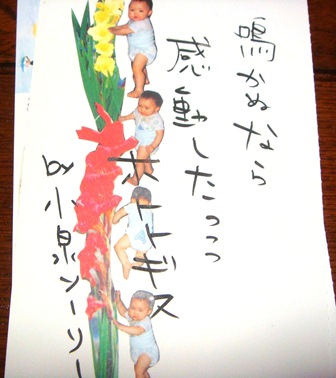 鳴かぬなら
感動したっっっ
ホトトギス
by 小泉ソーリー